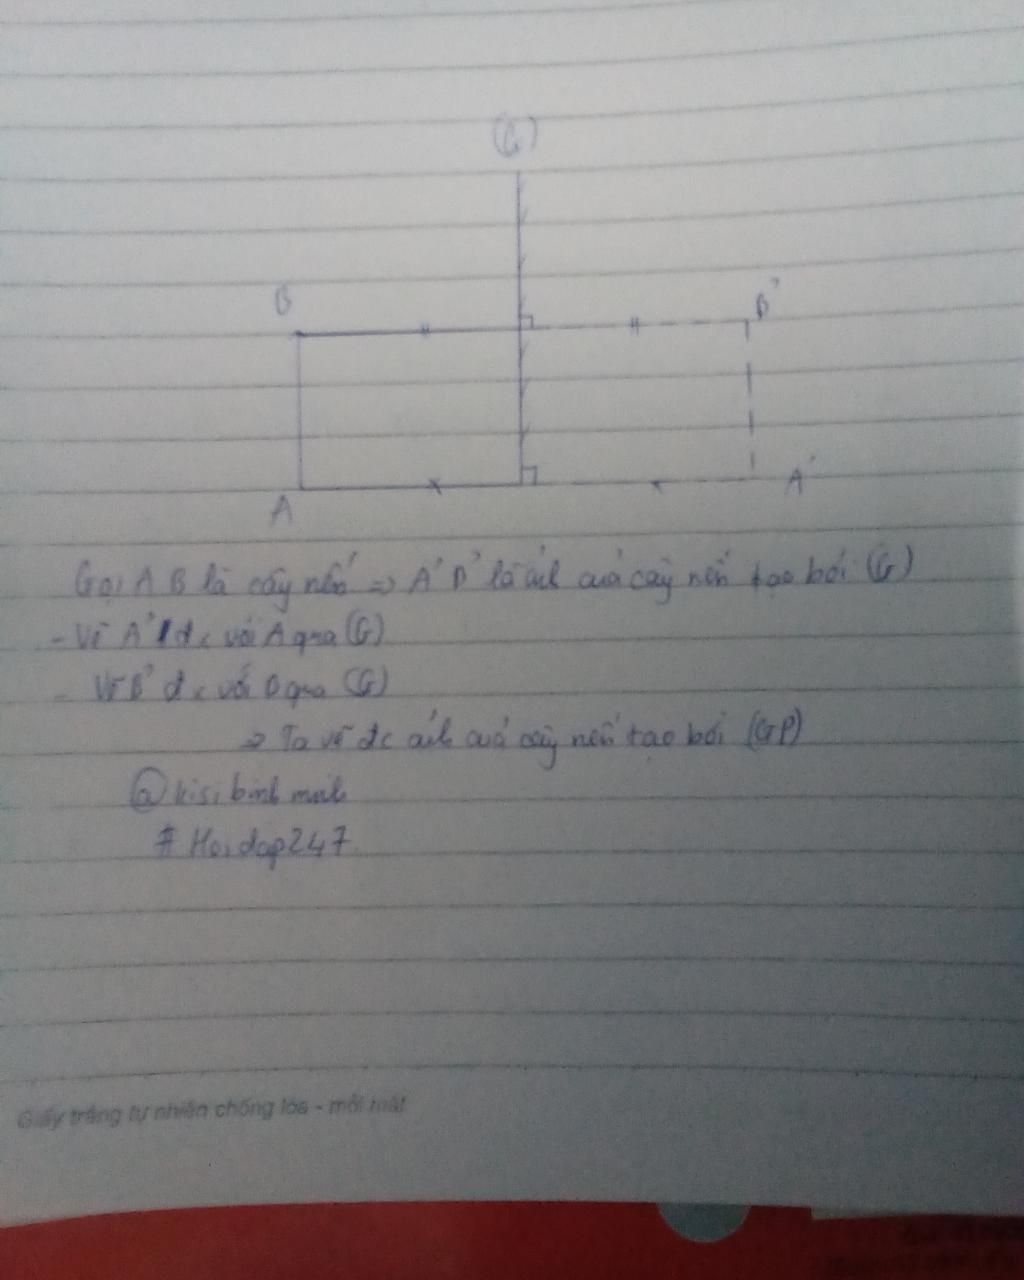 (G)
B
B'
A
A'
Gọi AB là cây nến => A'B' là ảh của cây nến tạo bởi (G)
- Vẽ A' đx với A qua (G)
- Vẽ B' đx với B qua (G)
=> Ta vẽ đc ảh của cây nến tạo bởi (GP)
@kisibinh
# Hoidap247
Giấy trắng tự nhiên chống lóa - mỏi mắt